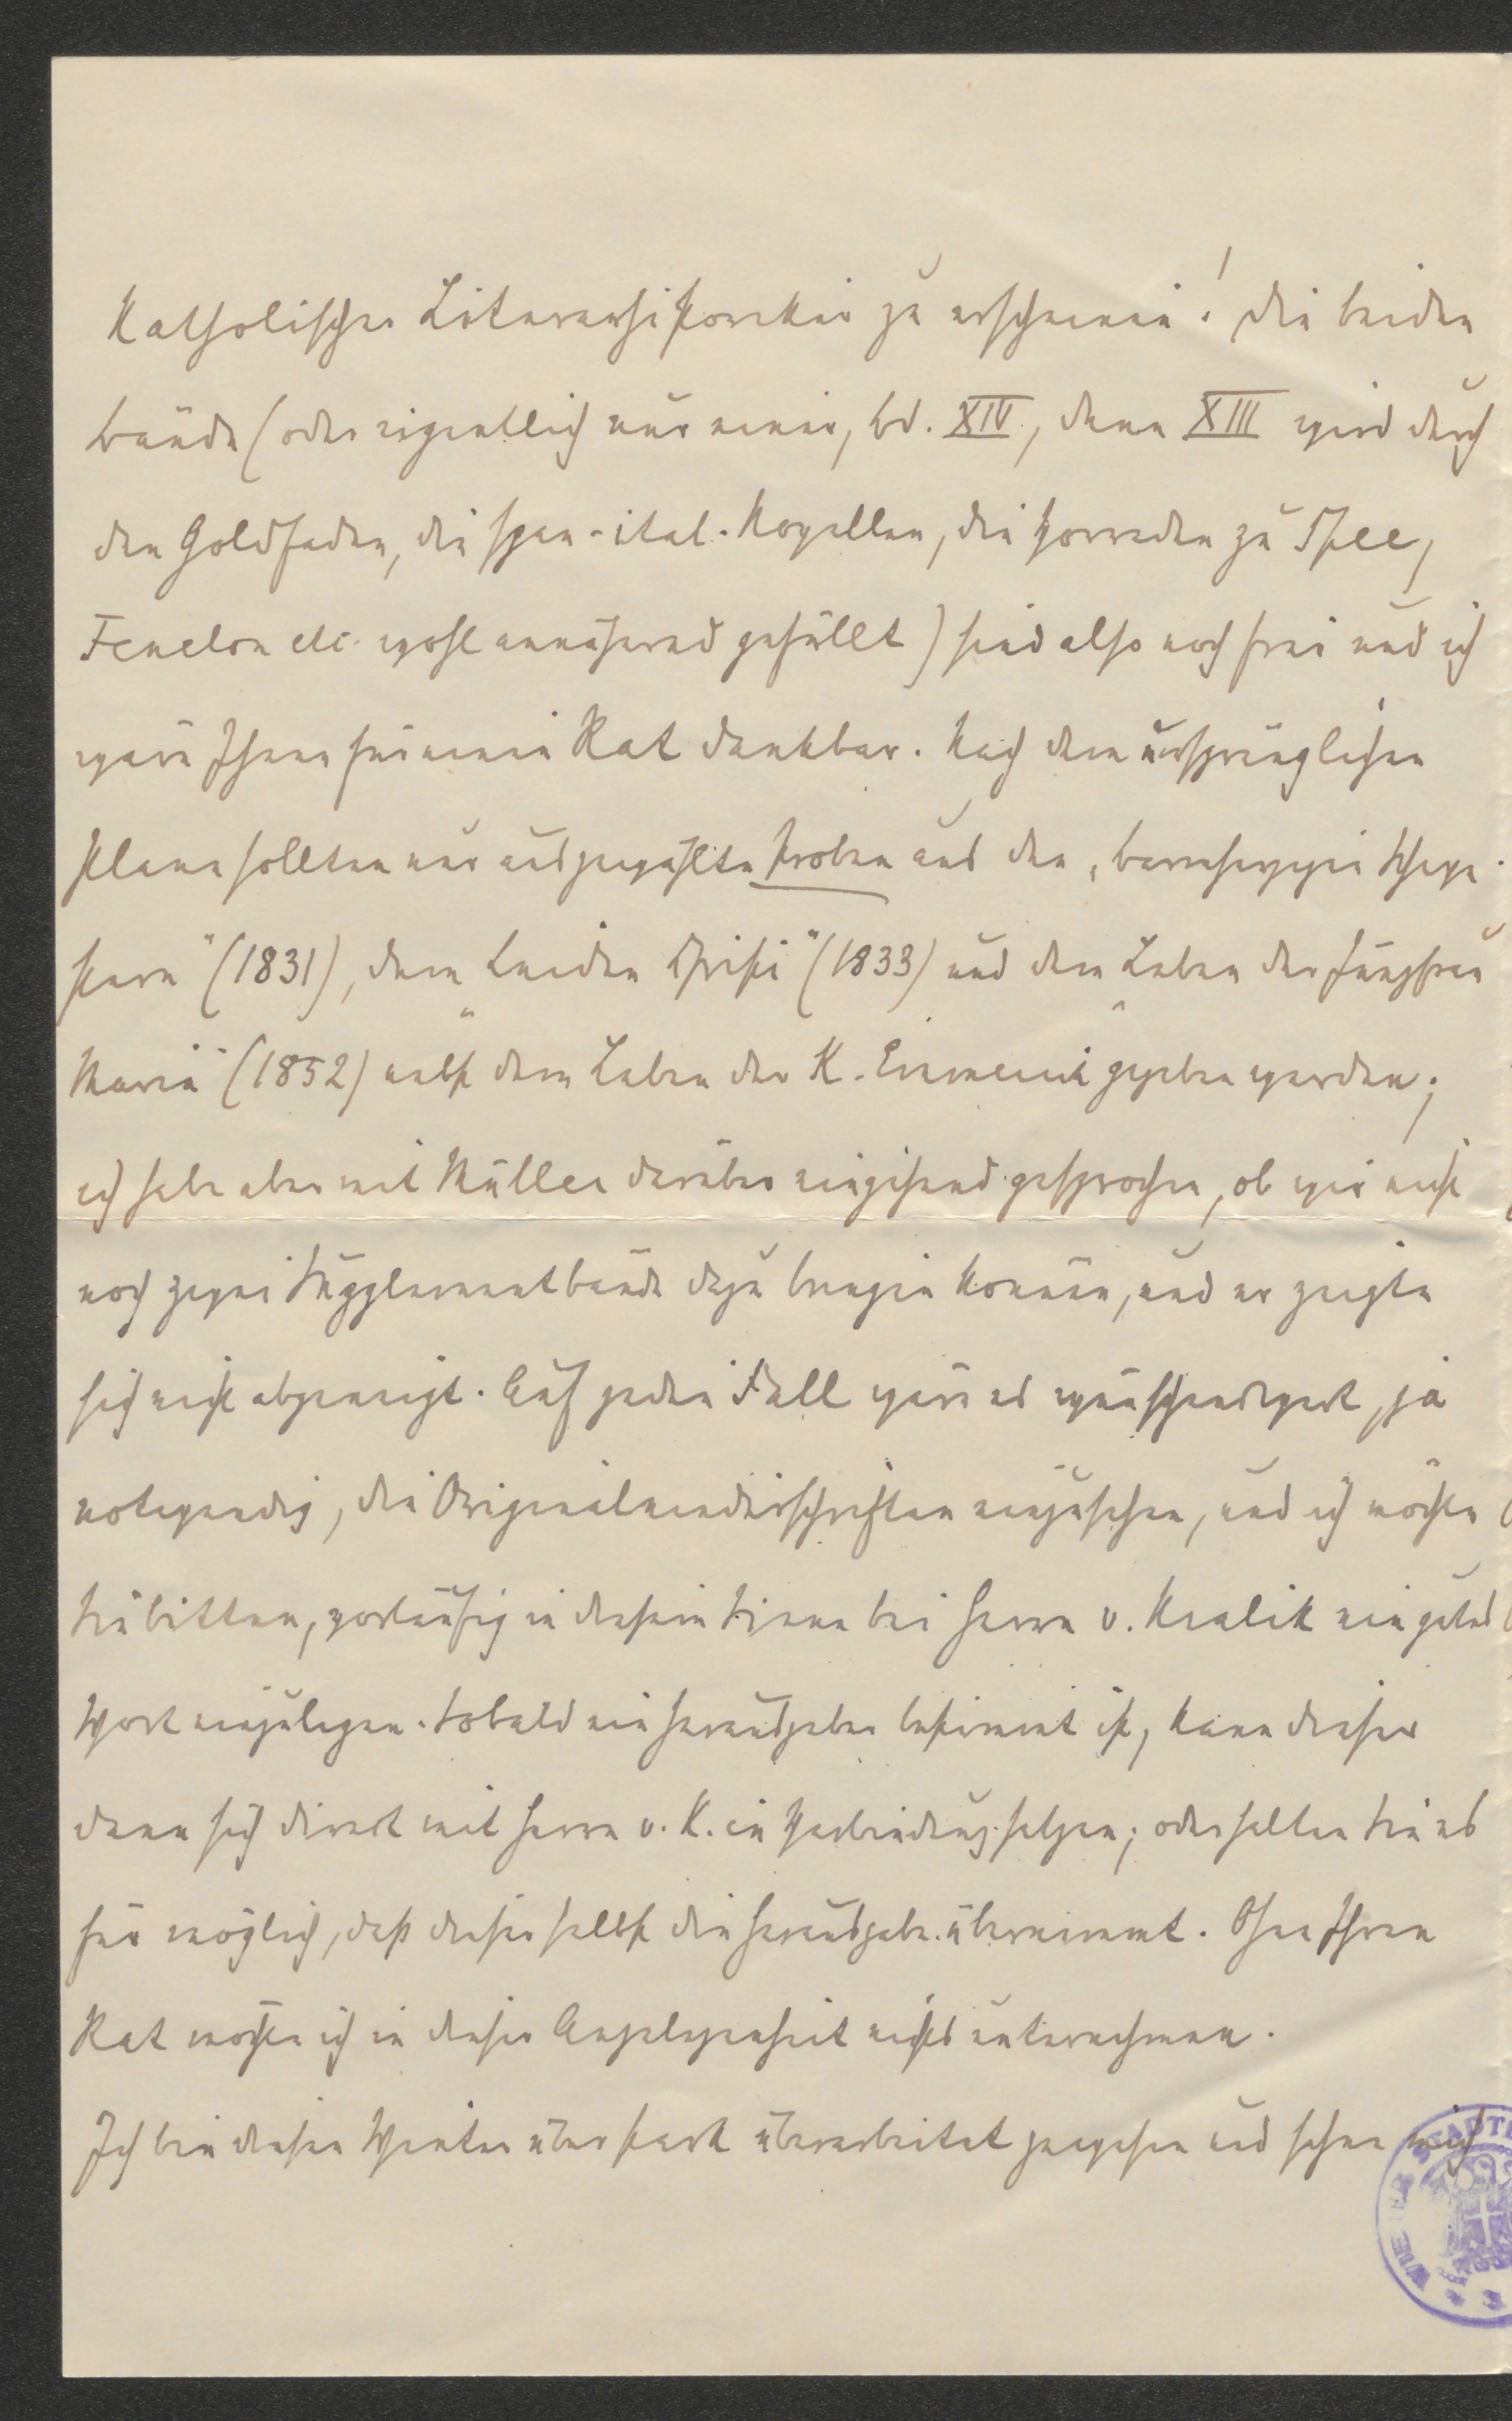 Katholischer Literarhistoriker zu erscheinen! Die beiden
Bände (oder eigentlich nur einer, Bd. XIV, denn XIII wird durch
den Goldfaden, die span-ital. Novellen, die Vorreden zu Spee,
Fenelon etc. wohl annähernd gefüllt) sind also noch frei und ich
wäre Ihnen für einen Rat dankbar. Nach dem ursprünglichen
Plane sollten nur ausgewählte Proben aus den „barmherzigen Schwe-
stern" (1831), dem „Leiden Christi" (1833) und dem „Leben der Jungfrau
Maria" (1852) nebst dem Leben der K. Emmerick gegeben werden;
ich habe aber mit Müller darüber eingehend gesprochen, ob wir nicht
noch zwei Supplementbände dazu bringen können, und er zeigte
sich nicht abgeneigt. Auf jeden Fall wäre es wünschenswert, ja
notwendig, die Originalniederschriften einzusehen, und ich möchte
Sie bitten, vorläufig in diesem Sinne bei Herrn v. Kralik ein gutes
Wort einzulegen. Sobald ein Herausgeber bestimmt ist, kann dieser
dann sich direct mit Herrn v. K. in Verbindung setzen; oder halten Sie es
für möglich, daß dieser selbst die Herausgabe übernimmt. Ohne Ihren
Rat möchte ich in dieser Angelegenheit nichts unternehmen.
Ich bin diesen Winter über stark überarbeitet gewesen und sehne mich
WIENER STADT